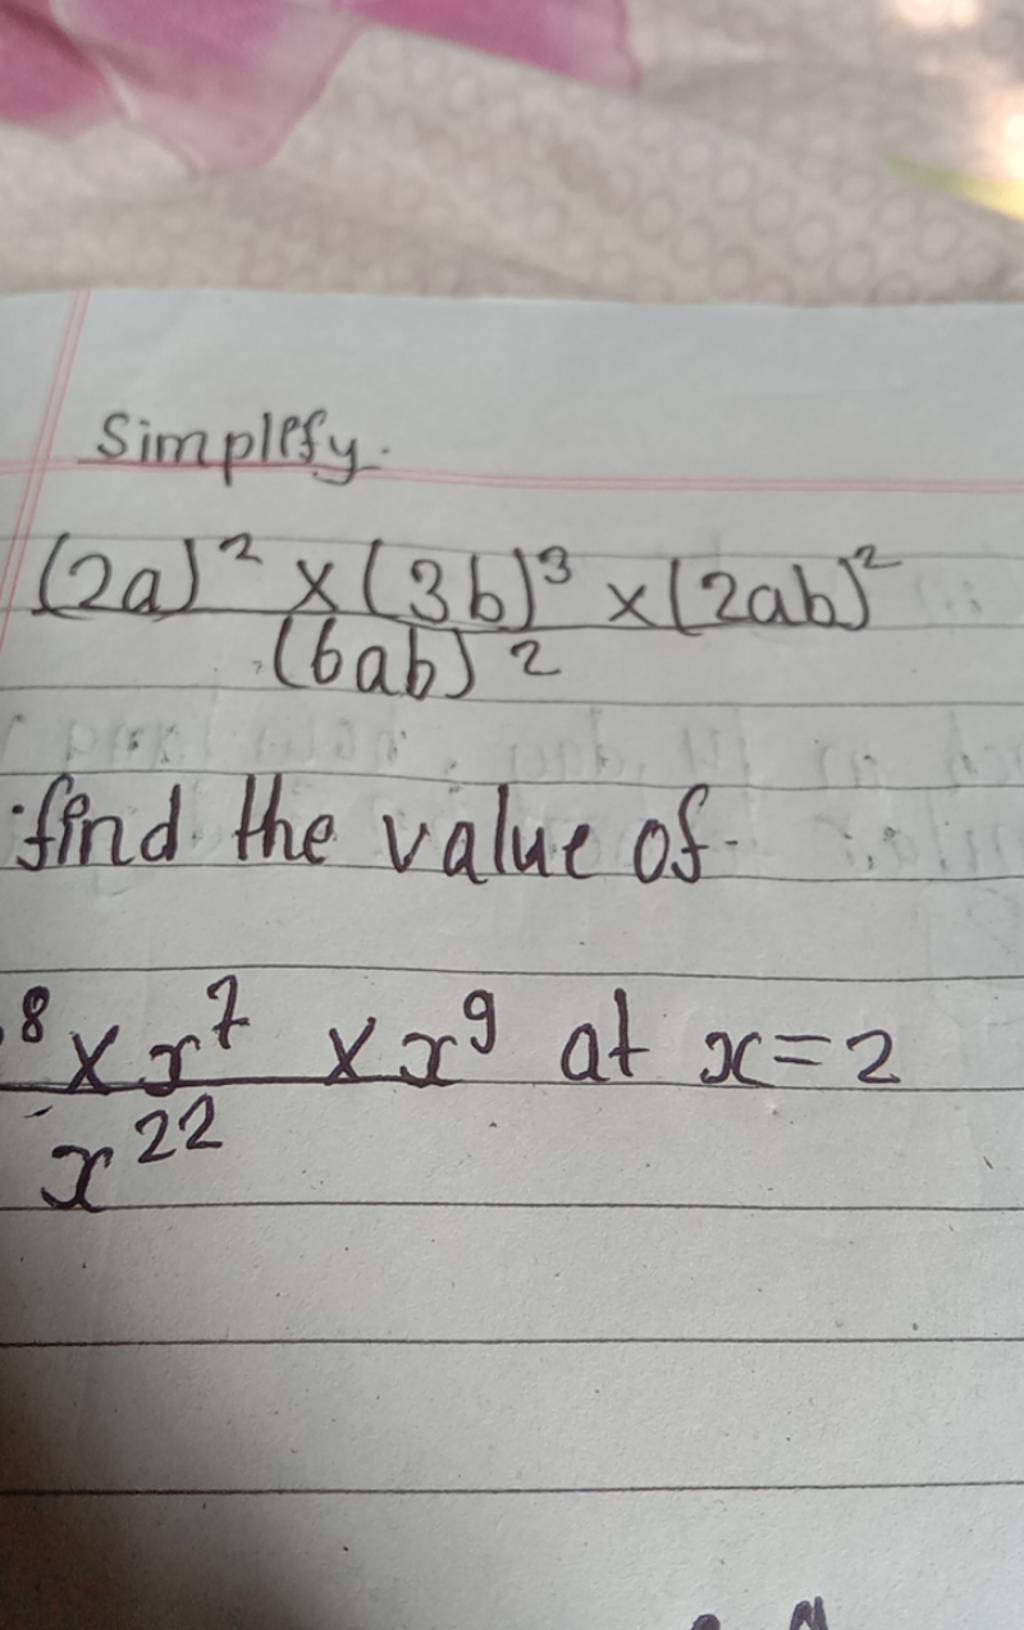 Simplify.
(2a)² x (3b)³ x (2ab)²
(6ab)²
find the value of
⁸ x x⁷ x x⁹ at x=2
x²²